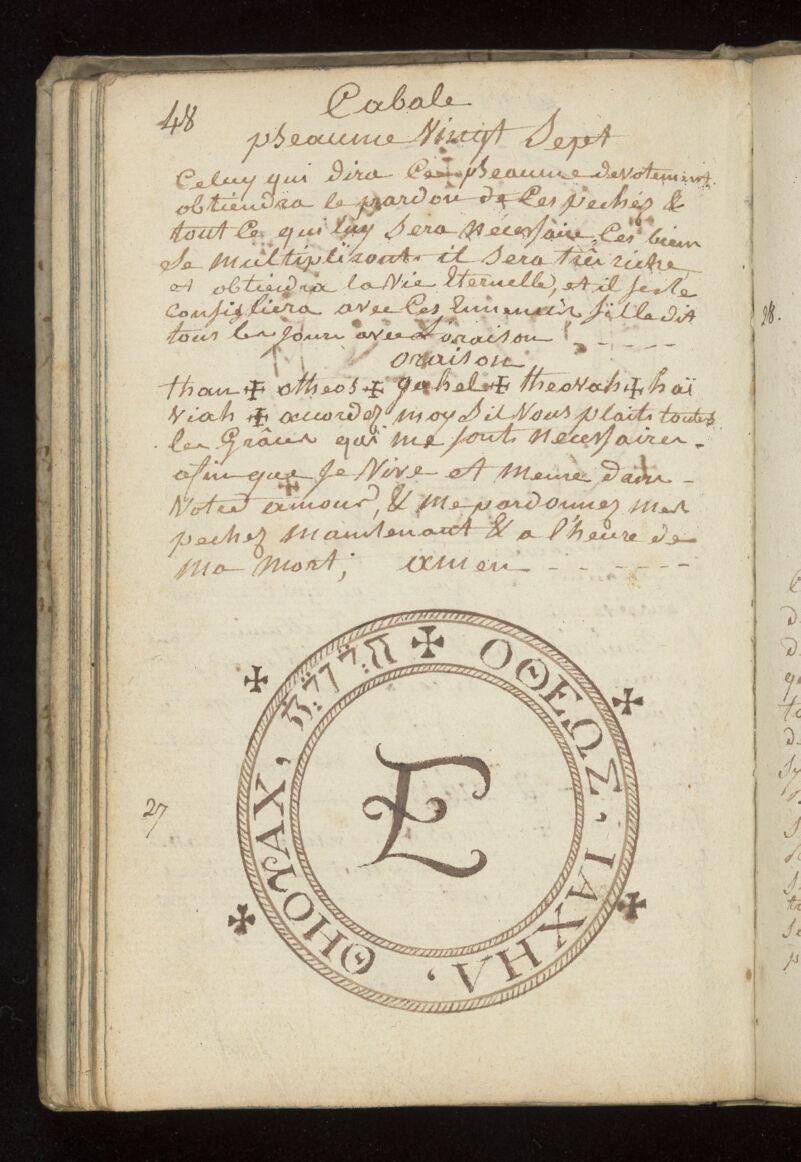 48
Cabale
pseaume Vingt Sept
Celuy qui dira Ce pseaume devotement
obtiendra le pardon de Ces pechéz &
tout Ce qui luy Sera nécessaire, Ces bien
Se multipliront il Sera très riche
et obtiendra la Vie Eternelle, et il se
avec Ces Ennemis Sil le dit
tous les jours avec Loraison
oraison
than ✠ otheos ✠ Jahel ✠ theovah ✠ haï
viah ✠ accordez moy Sil Vous plait toutes
les Grâces qui me sont necessaires
afin que Je Vive et meure dans
Votre amour, & me pardonnez mes
pechez maintenant & a l'heure de
ma mort; amen
✠ ΟΘΕΩΣ, ΙΑΧΗΛ, ΘΗΟΥΑΧ,
E
27
28.